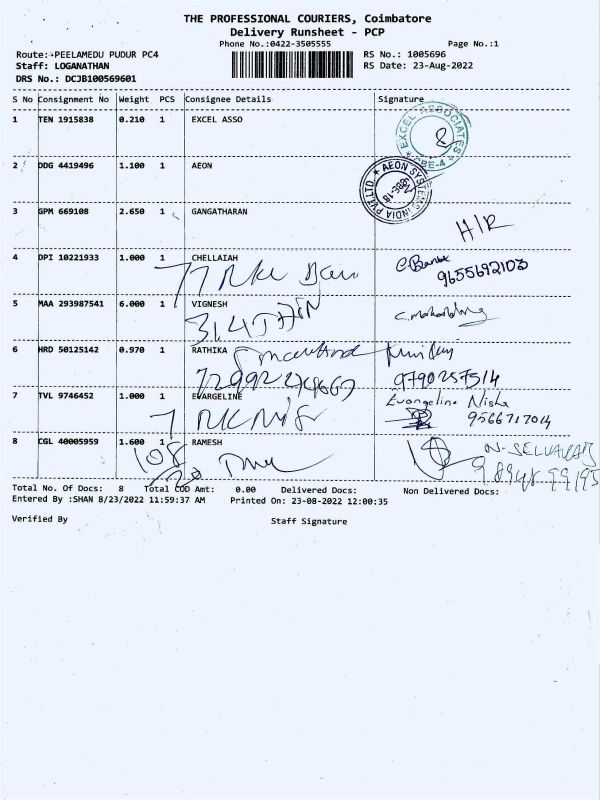 THE PROFESSIONAL COURIERS, Coimbatore
Delivery Runsheet - PCP
Phone No.:0422-3505555
Page No.:1
Route:-PEELAMEDU PUDUR PC4
RS No.: 1005696
Staff: LOGANATHAN
RS Date: 23-Aug-2022
DRS No.: DCJB100569601
S No Consignment No Weight PCS Consignee Details Signature
1 TEN 1915838 0.210 1 EXCEL ASSO
EXCEL ASSOCIATES
CBE-4
2 DDG 4419496 1.100 1 AEON
AEON SYSTEMS INDIA PVT LTD
3 GPM 669108 2.650 1 GANGATHARAN
H/R
4 DPI 10221933 1.000 1 CHELLAIAH
9655692103
5 MAA 293987541 6.000 1 VIGNESH
6 HRD 50125142 0.970 1 RATHIKA
9790257514
7 TVL 9746452 1.000 1 EVARGELINE
Evangeline Nisha
9566717014
8 CGL 40005959 1.600 1 RAMESH
108
N-SELVARAJ
Total No. Of Docs: 8 Total COD Amt: 0.00 Delivered Docs: Non Delivered Docs:
Entered By :SHAN 8/23/2022 11:59:37 AM Printed On: 23-08-2022 12:00:35
Verified By
Staff Signature